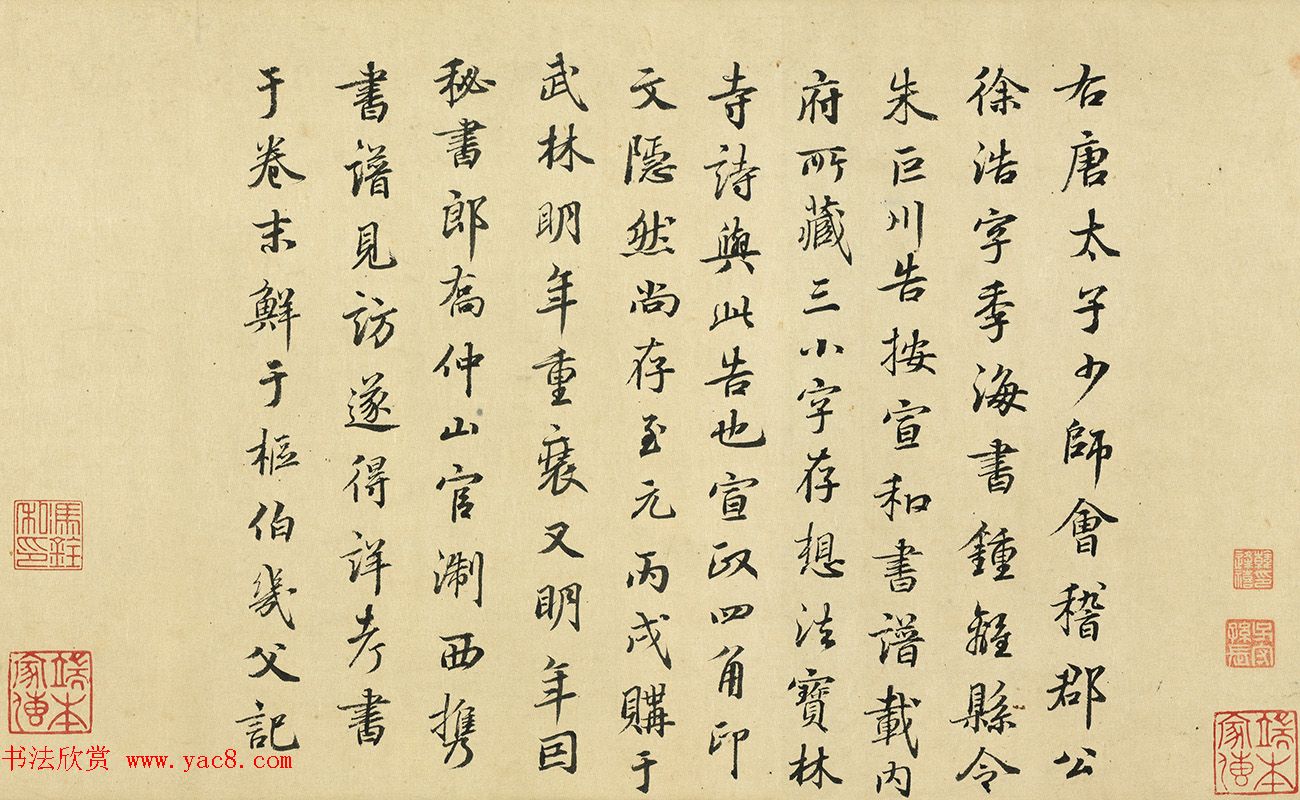 右唐太子少師會稽郡公
徐浩字季海書鍾離縣令
朱巨川告按宣和書譜載內
府所藏三小字存想法寶林
寺詩與此告也宣政四角印
文隱然尚存至元丙戌購于
武林明年重裝又明年因
秘書郎喬仲山官淛西攜
書譜見訪遂得詳考書
于卷末鮮于樞伯幾父記
馮銓私印
端本家傳
端本家傳
书法欣赏 www.yac8.com